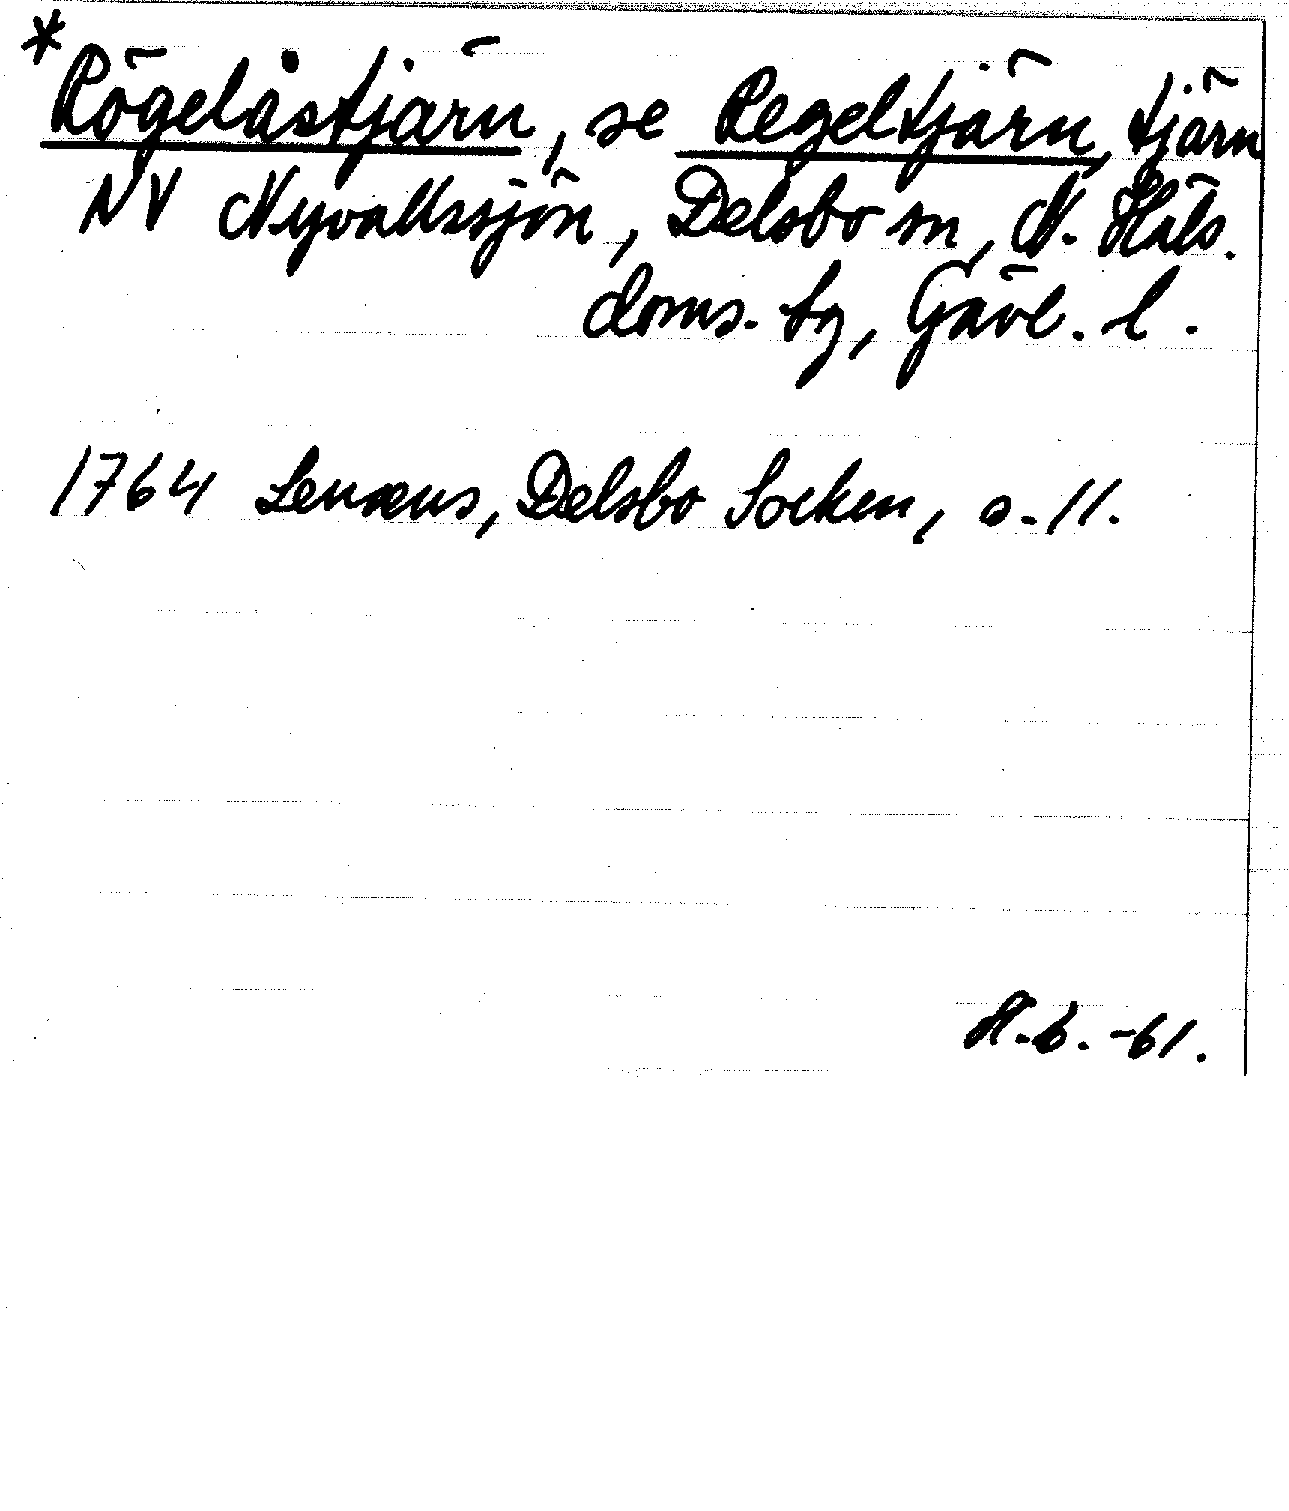 * Rögelåstjärn, se Regeltjärn, tjärn
NV Nyvallssjön, Delsbo sn, N. Häls.
doms. tg, Gävl. l.
1764 Lenæus, Delsbo Socken, s. 11.
H.b. -61.